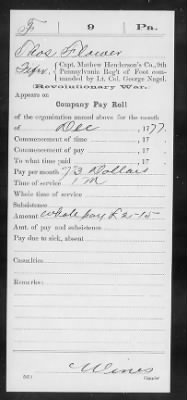 F 9 Pa.
Thos Flower
Fifer, Capt. Mathew Henderson's Co., 9th
Pennsylvania Reg't of Foot commanded
by Lt. Col. George Nagel.
Revolutionary War.
Appears on
Company Pay Roll
of the organization named above for the month
of Dec, 1777.
Commencement of time, 17
Commencement of pay, 17
To what time paid, 17
Pay per month 7 1/3 Dollars
Time of service 1 M
Whole time of service
Subsistence
Amount whole pay £2-15
Amt. of pay and subsistence
Pay due to sick, absent
Casualties
Remarks:
Wines